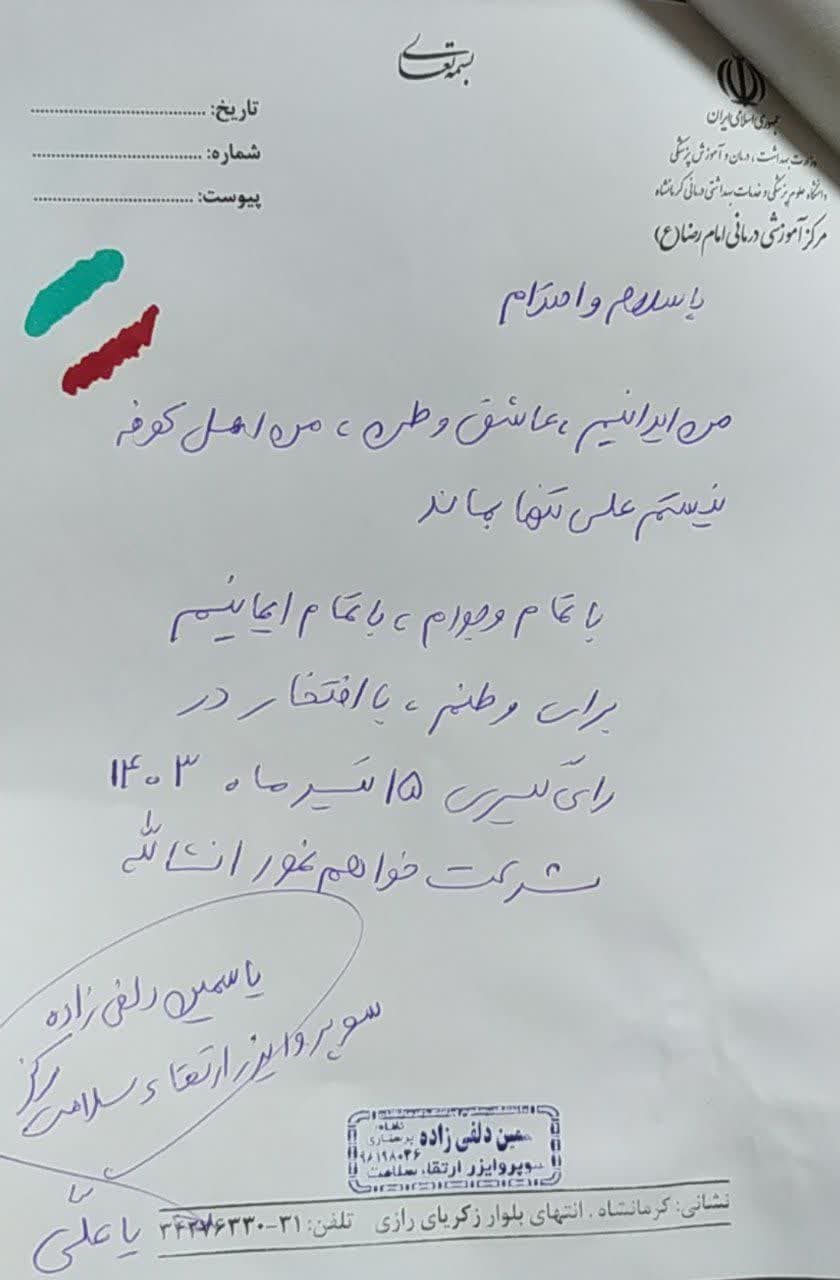 بسمه تعالی
جمهوری اسلامی ایران
وزارت بهداشت، درمان و آموزش پزشکی
دانشگاه علوم پزشکی و خدمات بهداشتی درمانی کرمانشاه
مرکز آموزشی درمانی امام رضا (ع)
تاریخ:
شماره:
پیوست:
با سلام و احترام
من ایرانیم ، عاشق وطن ، من اهل کوفه
نیستم علی تنها بماند
با تمام وجودم ، با تمام ایمانیم
برای وطنم ، با افتخار در
رأی گیری ۱۵ تیر ماه ۱۴۰۳
شرکت خواهم نمود انشالله
یاسمین دلفی زاده
سوپروایزر ارتقاء سلامت مرکز
یاسمین دلفی زاده
پرستاری
۹۸۱۹۸۰۳۶
سوپروایزر ارتقاء سلامت
یا علی
نشانی: کرمانشاه . انتهای بلوار زکریای رازی تلفن: ۳۱-۳۴۲۷۶۳۳۰